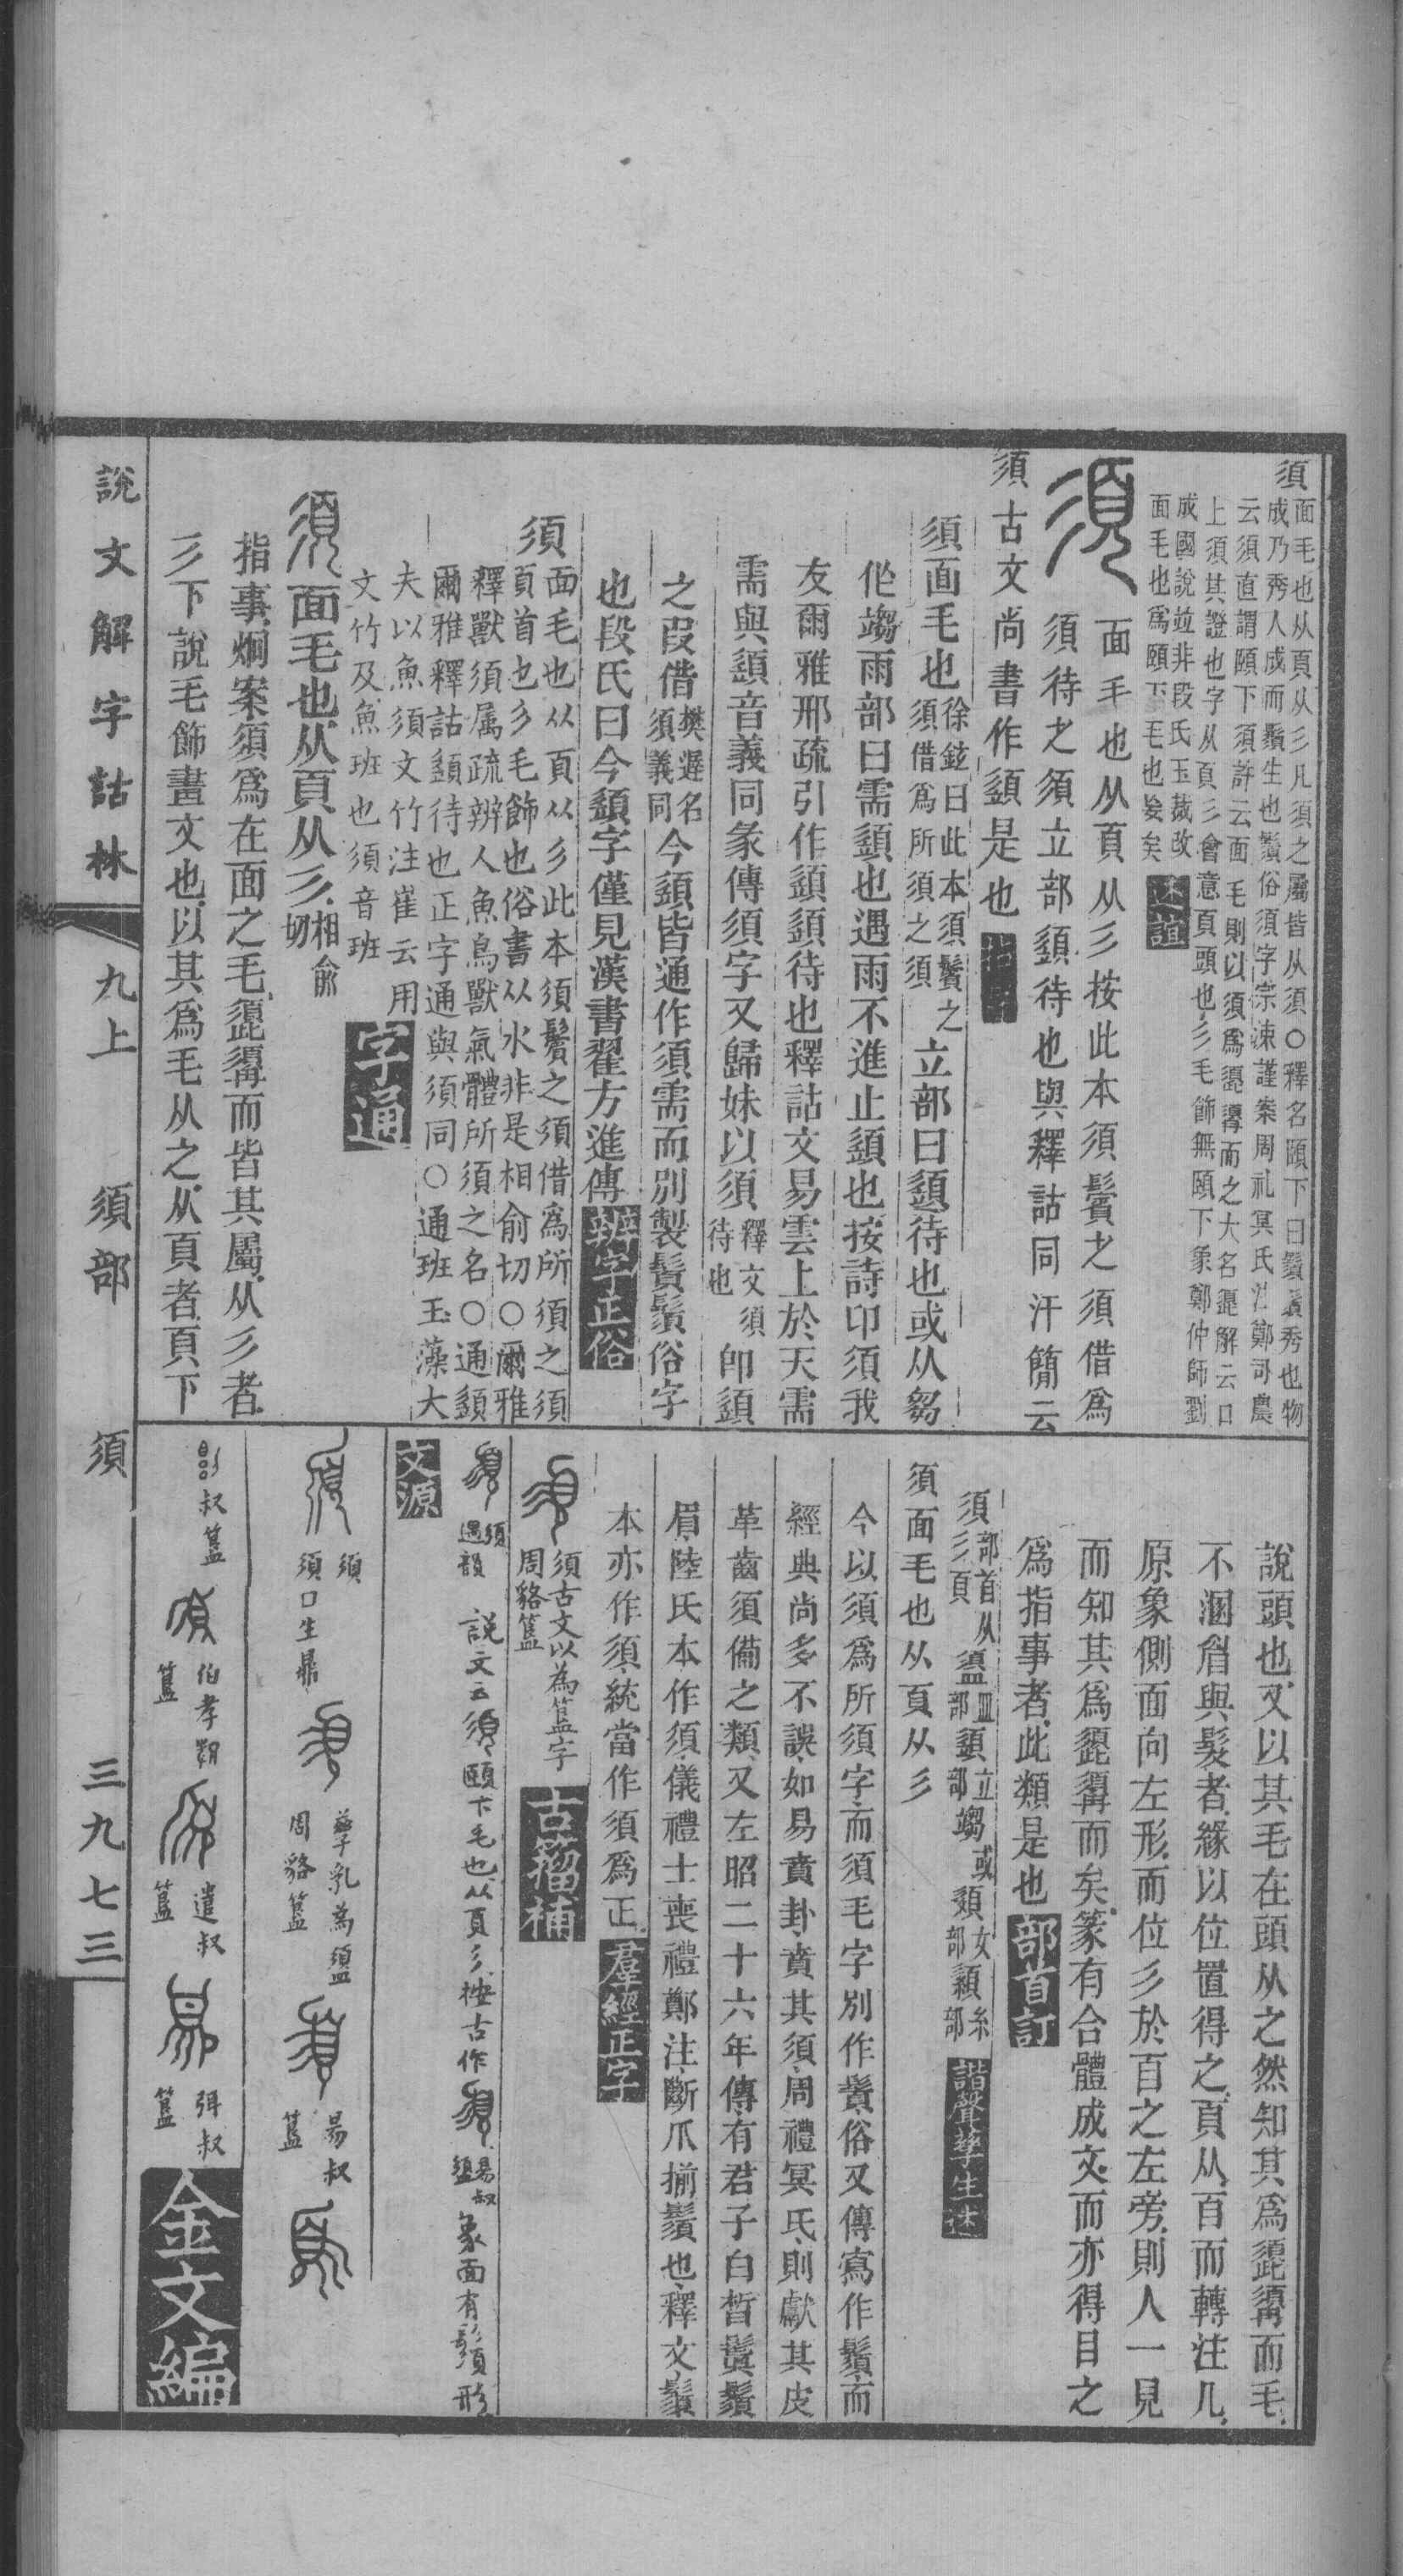 須
面毛也从頁从彡凡須之屬皆从須○釋名頤下曰鬚鬚秀也物
成乃秀人成而鬚生也鬚俗須字宗涑謹案周礼冥氏注鄭司農
云須直謂頤下須許云面毛則以須為𩑺𩓣而之大名𩑺解云口
上須其證也字从頁彡會意頁頭也彡毛飾無頤下象鄭仲師劉
成國說竝非段氏玉裁改
面毛也爲頤下毛也㚇矣
述誼
面毛也从頁从彡按此本須鬢之須借爲
須待之須立部䇓待也與釋詁同汗簡云
須古文尚書作䇓是也
須面毛也徐鉉曰此本須鬢之須借爲所須之須立部曰䇓待也或从芻
作䇍雨部曰需䇓也遇雨不進止䇓也按詩卬須我
友爾雅邢疏引作䇓䇓待也釋詁文易雲上於天需
需與䇓音義同彖傳須字又歸妹以須釋文須待也卽䇓
之叚借樊遲名須義同今䇓皆通作須需而別製鬚鬚俗字
也段氏曰今䇓字僅見漢書翟方進傳
辨字正俗
須
面毛也从頁从彡此本須鬢之須借爲所須之須
頁首也彡毛飾也俗書从水非是相俞切○爾雅
釋獸須属疏辨人魚鳥獸氣體所須之名○通䇓
爾雅釋詁䇓待也正字通與須同○通班玉藻大
夫以魚須文竹注崔云用
文竹及魚班也須音班
字通
須面毛也从頁从彡相俞切
指事炯案須爲在面之毛𩑺𩓣而皆其屬从彡者
彡下說毛飾畫文也以其爲毛从之从頁者頁下
說頭也又以其毛在頭从之然知其爲𩑺𩓣而毛
不溷眉與髮者緣以位置得之頁从𦣻而轉注几
原象側面向左形而位彡於𦣻之左旁則人一見
而知其爲𩑺𩓣而矣篆有合體成文而亦得目之
爲指事者此類是也
部首訂
須部首从彡頁盨皿部䇓立部䇍或嬃女部䋶糸部
諧聲孳生述
須面毛也从頁从彡
今以須爲所須字而須毛字別作鬚俗又傳寫作鬚而
經典尚多不誤如易賁卦賁其須周禮冥氏則獻其皮
革齒須備之類又左昭二十六年傳有君子白皙鬒鬚
眉陸氏本作須儀禮士喪禮鄭注斷爪揃鬚也釋文鬚
本亦作須統當作須爲正
羣經正字
須古文以為簋字
周貉簋
古籀補
須遇韻
說文云須頤下毛也从頁彡按古作
易叔盨
象面有鬚形
文源
須
須口生鼎
孳乳為盨
周貉簋
易叔簋
叔簋
伯孝簋
遣叔簋
弭叔簋
金文編
說文解字詁林
九上
須部
須
三九七三